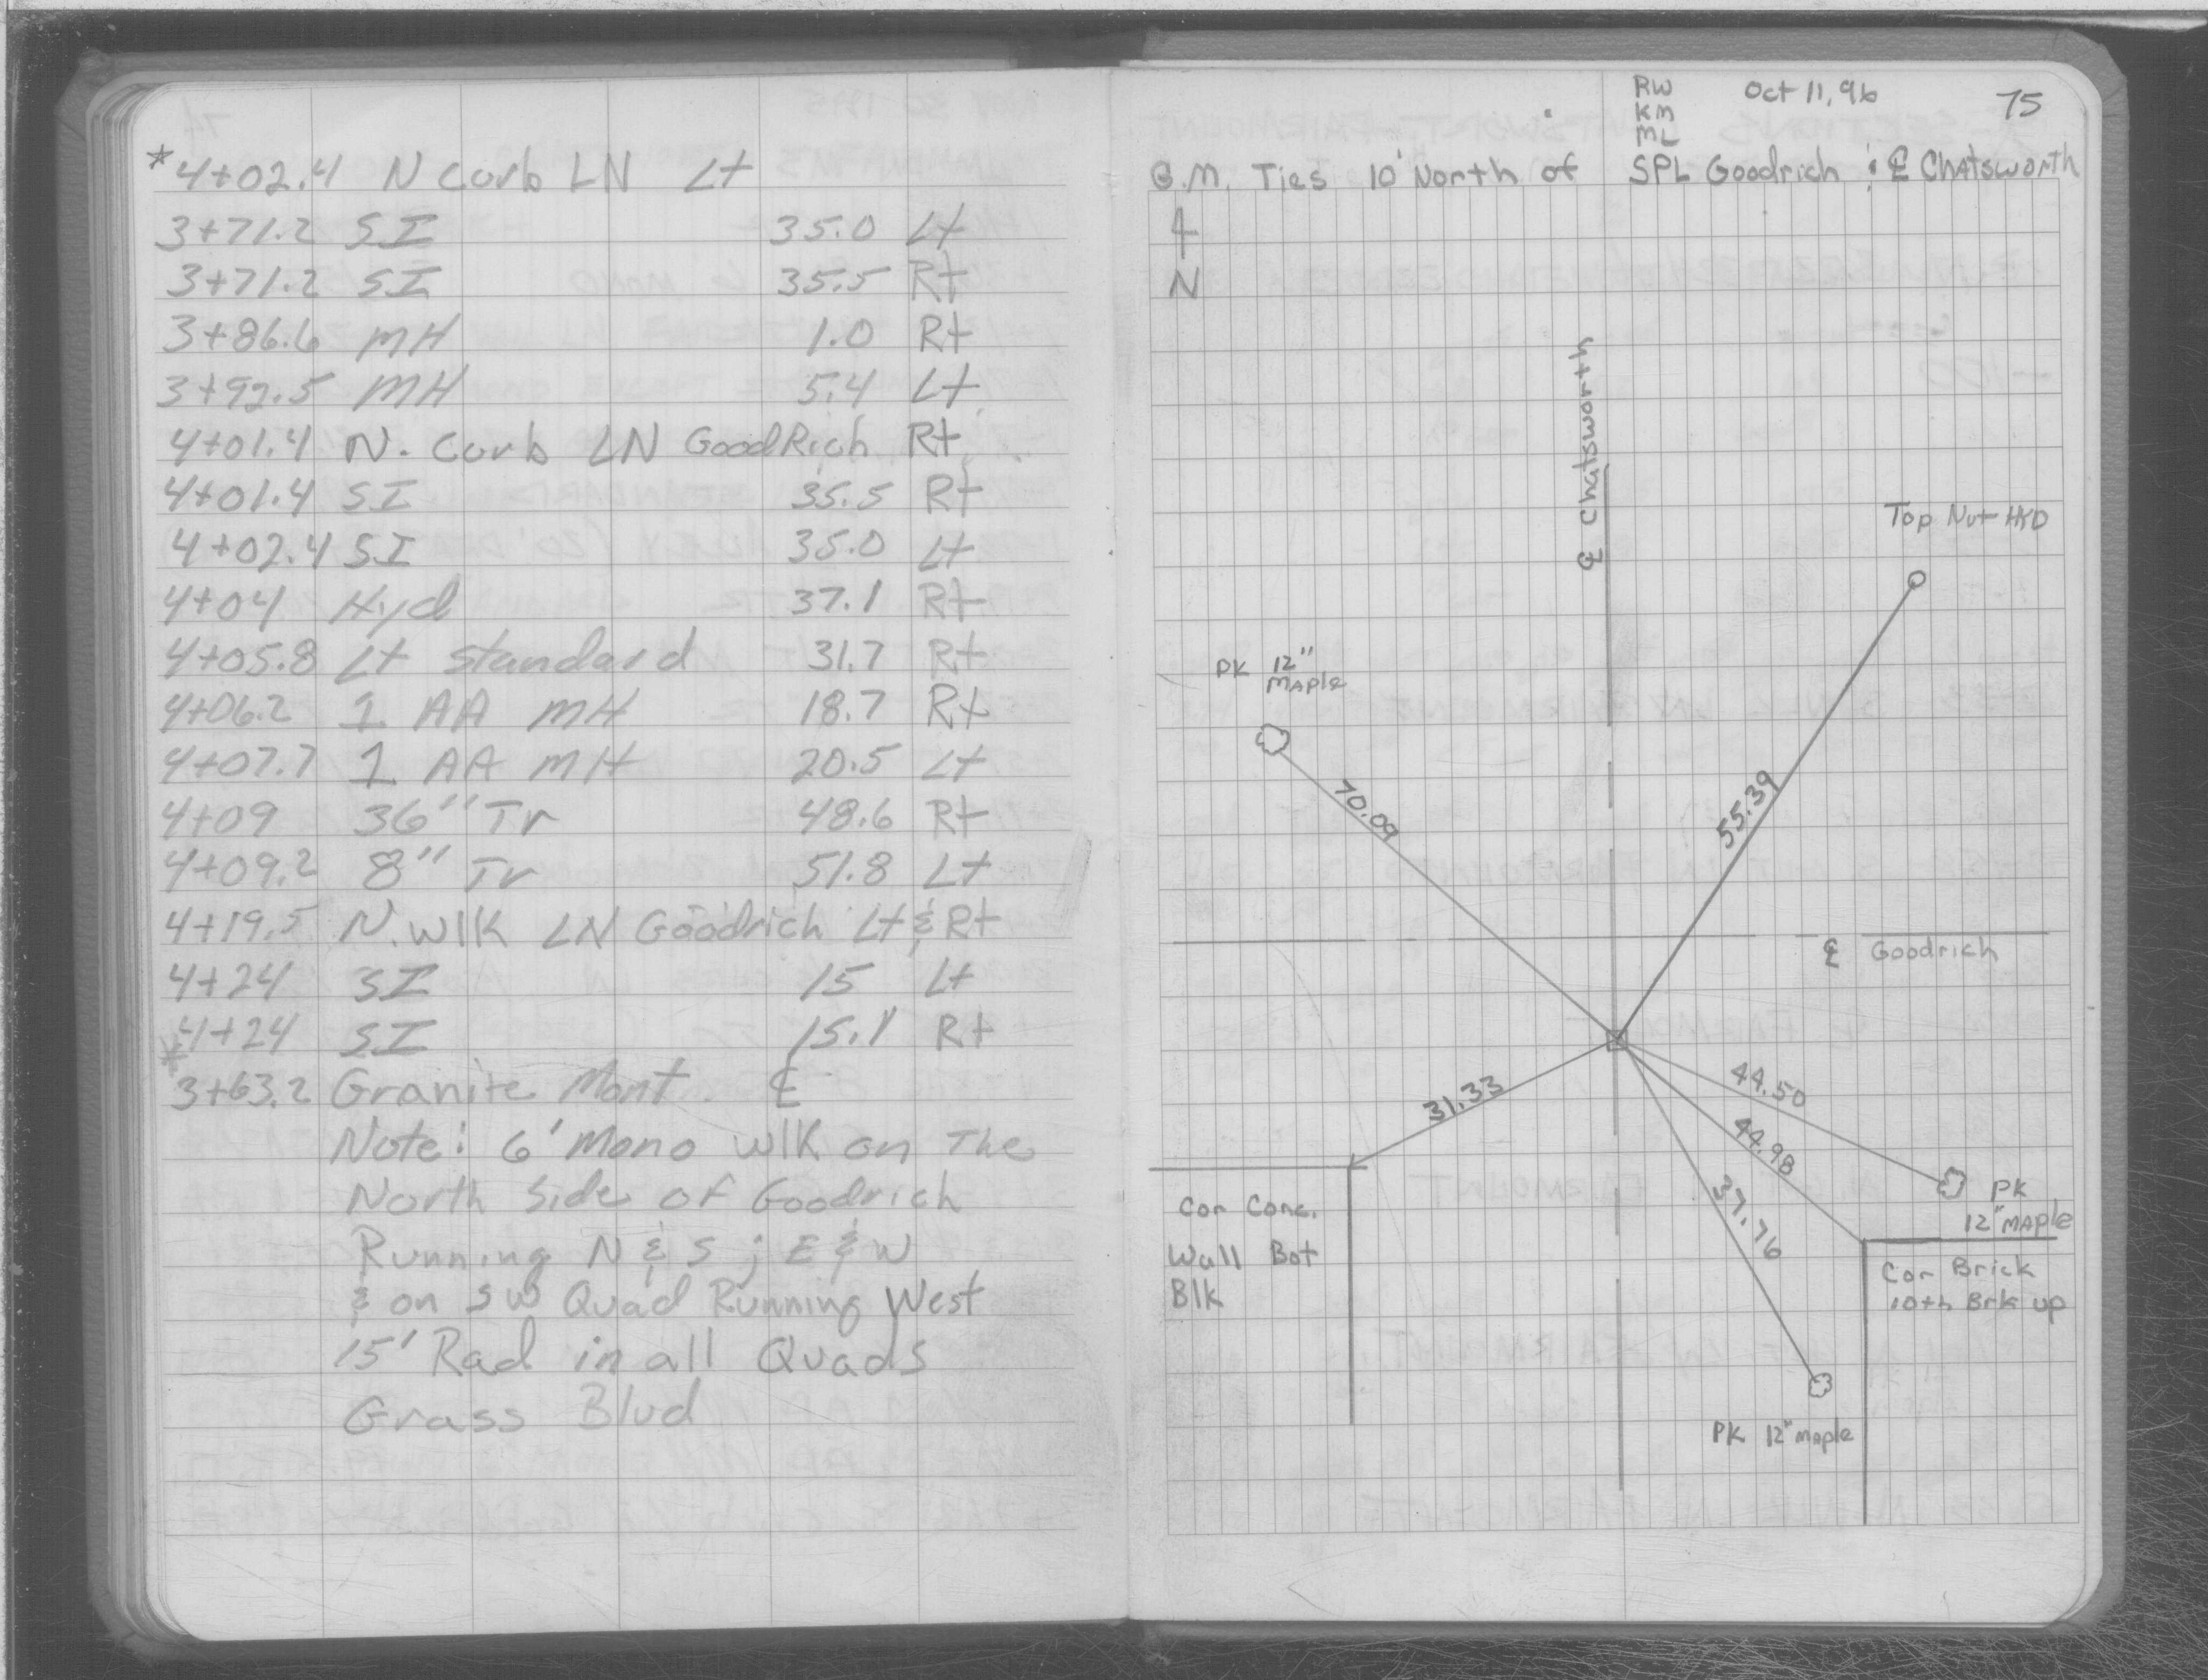 *4+02.4 N Curb LN Lt
3+71.2 SI 35.0 Lt
3+71.2 SI 35.5 Rt
3+86.6 MH 1.0 Rt
3+92.5 MH 5.4 Lt
4+01.4 N. Curb LN GoodRich Rt
4+01.4 SI 35.5 Rt
4+02.4 SI 35.0 Lt
4+04 Hyd 37.1 Rt
4+05.8 Lt Standard 31.7 Rt
4+06.2 1 AA MH 18.7 Rt
4+07.7 1 AA MH 20.5 Lt
4+09 36" Tr 48.6 Rt
4+09.2 8" Tr 51.8 Lt
4+19.5 N. Wlk LN Goodrich Lt & Rt
4+24 SI 15 Lt
4+24 SI 15.1 Rt
*3+63.2 Granite Mont. ℄
Note: 6' Mono Wlk on The
North Side of Goodrich
Running N & S ; E & W
& on SW Quad Running West
15' Rad in all Quads
Grass Blvd
RW Oct 11, 96 75
KM
ML
G.M. Ties 10' North of SPL Goodrich & ℄ Chatsworth
N
℄ Chatsworth
Top Nut HYD
PK 12"
Maple
70.09
55.39
℄ Goodrich
31.33
44.50
44.98
37.76
PK
12" Maple
Cor Conc.
Wall Bot
Blk
Cor Brick
10th Brk up
PK 12" Maple